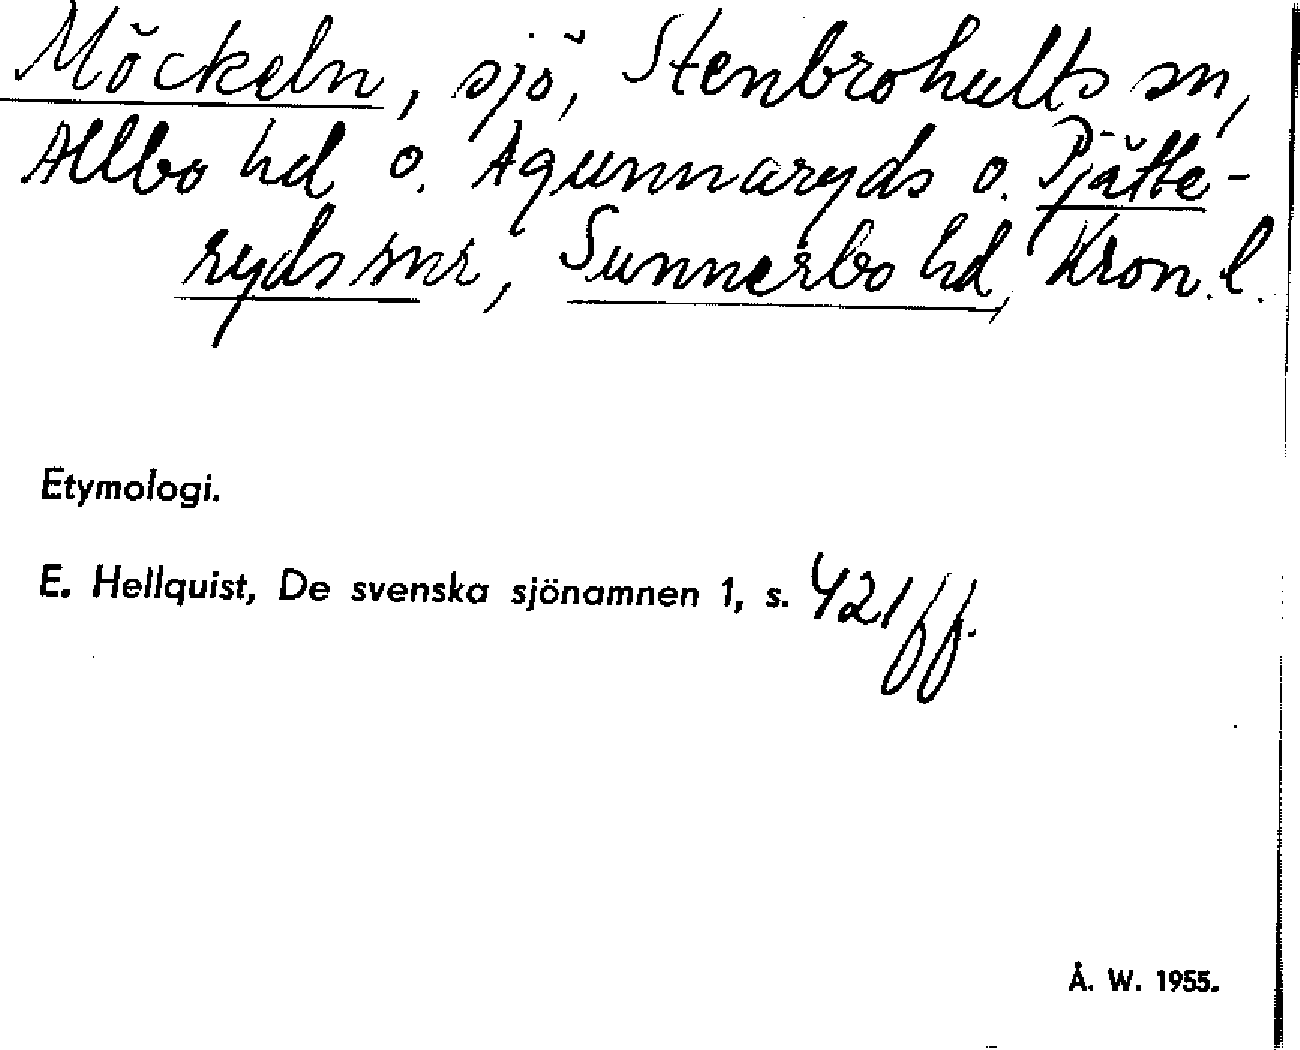 Möckeln, sjö, Stenbrohults sn,
Allbo hd o. Agunnaryds o. Pjätte-
ryds snr, Sunnerbo hd, Kron. l.
Etymologi.
E. Hellquist, De svenska sjönamnen 1, s. 421 ff.
Å. W. 1955.